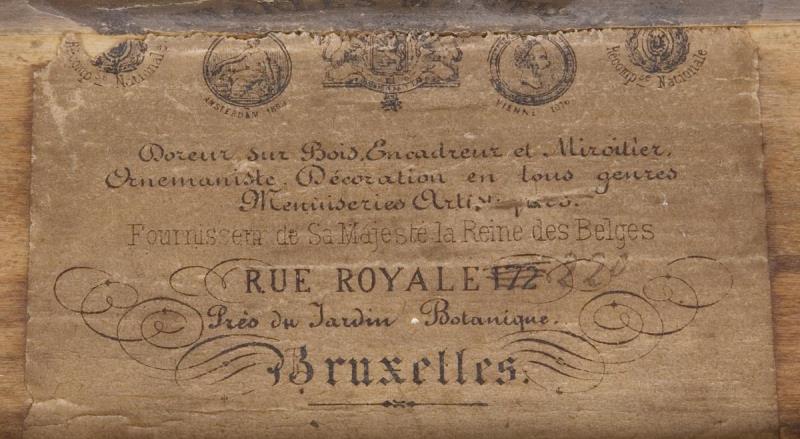 Récomp.se Nationale
AMSTERDAM
VIENNE
Récomp.se Nationale
Doreur sur Bois, Encadreur et Miroitier,
Ornemaniste. Décoration en tous genres
Menuiseries
Fournisseur de Sa Majesté la Reine des Belges
RUE ROYALE 172 220
Près du Jardin Botanique.
Bruxelles.